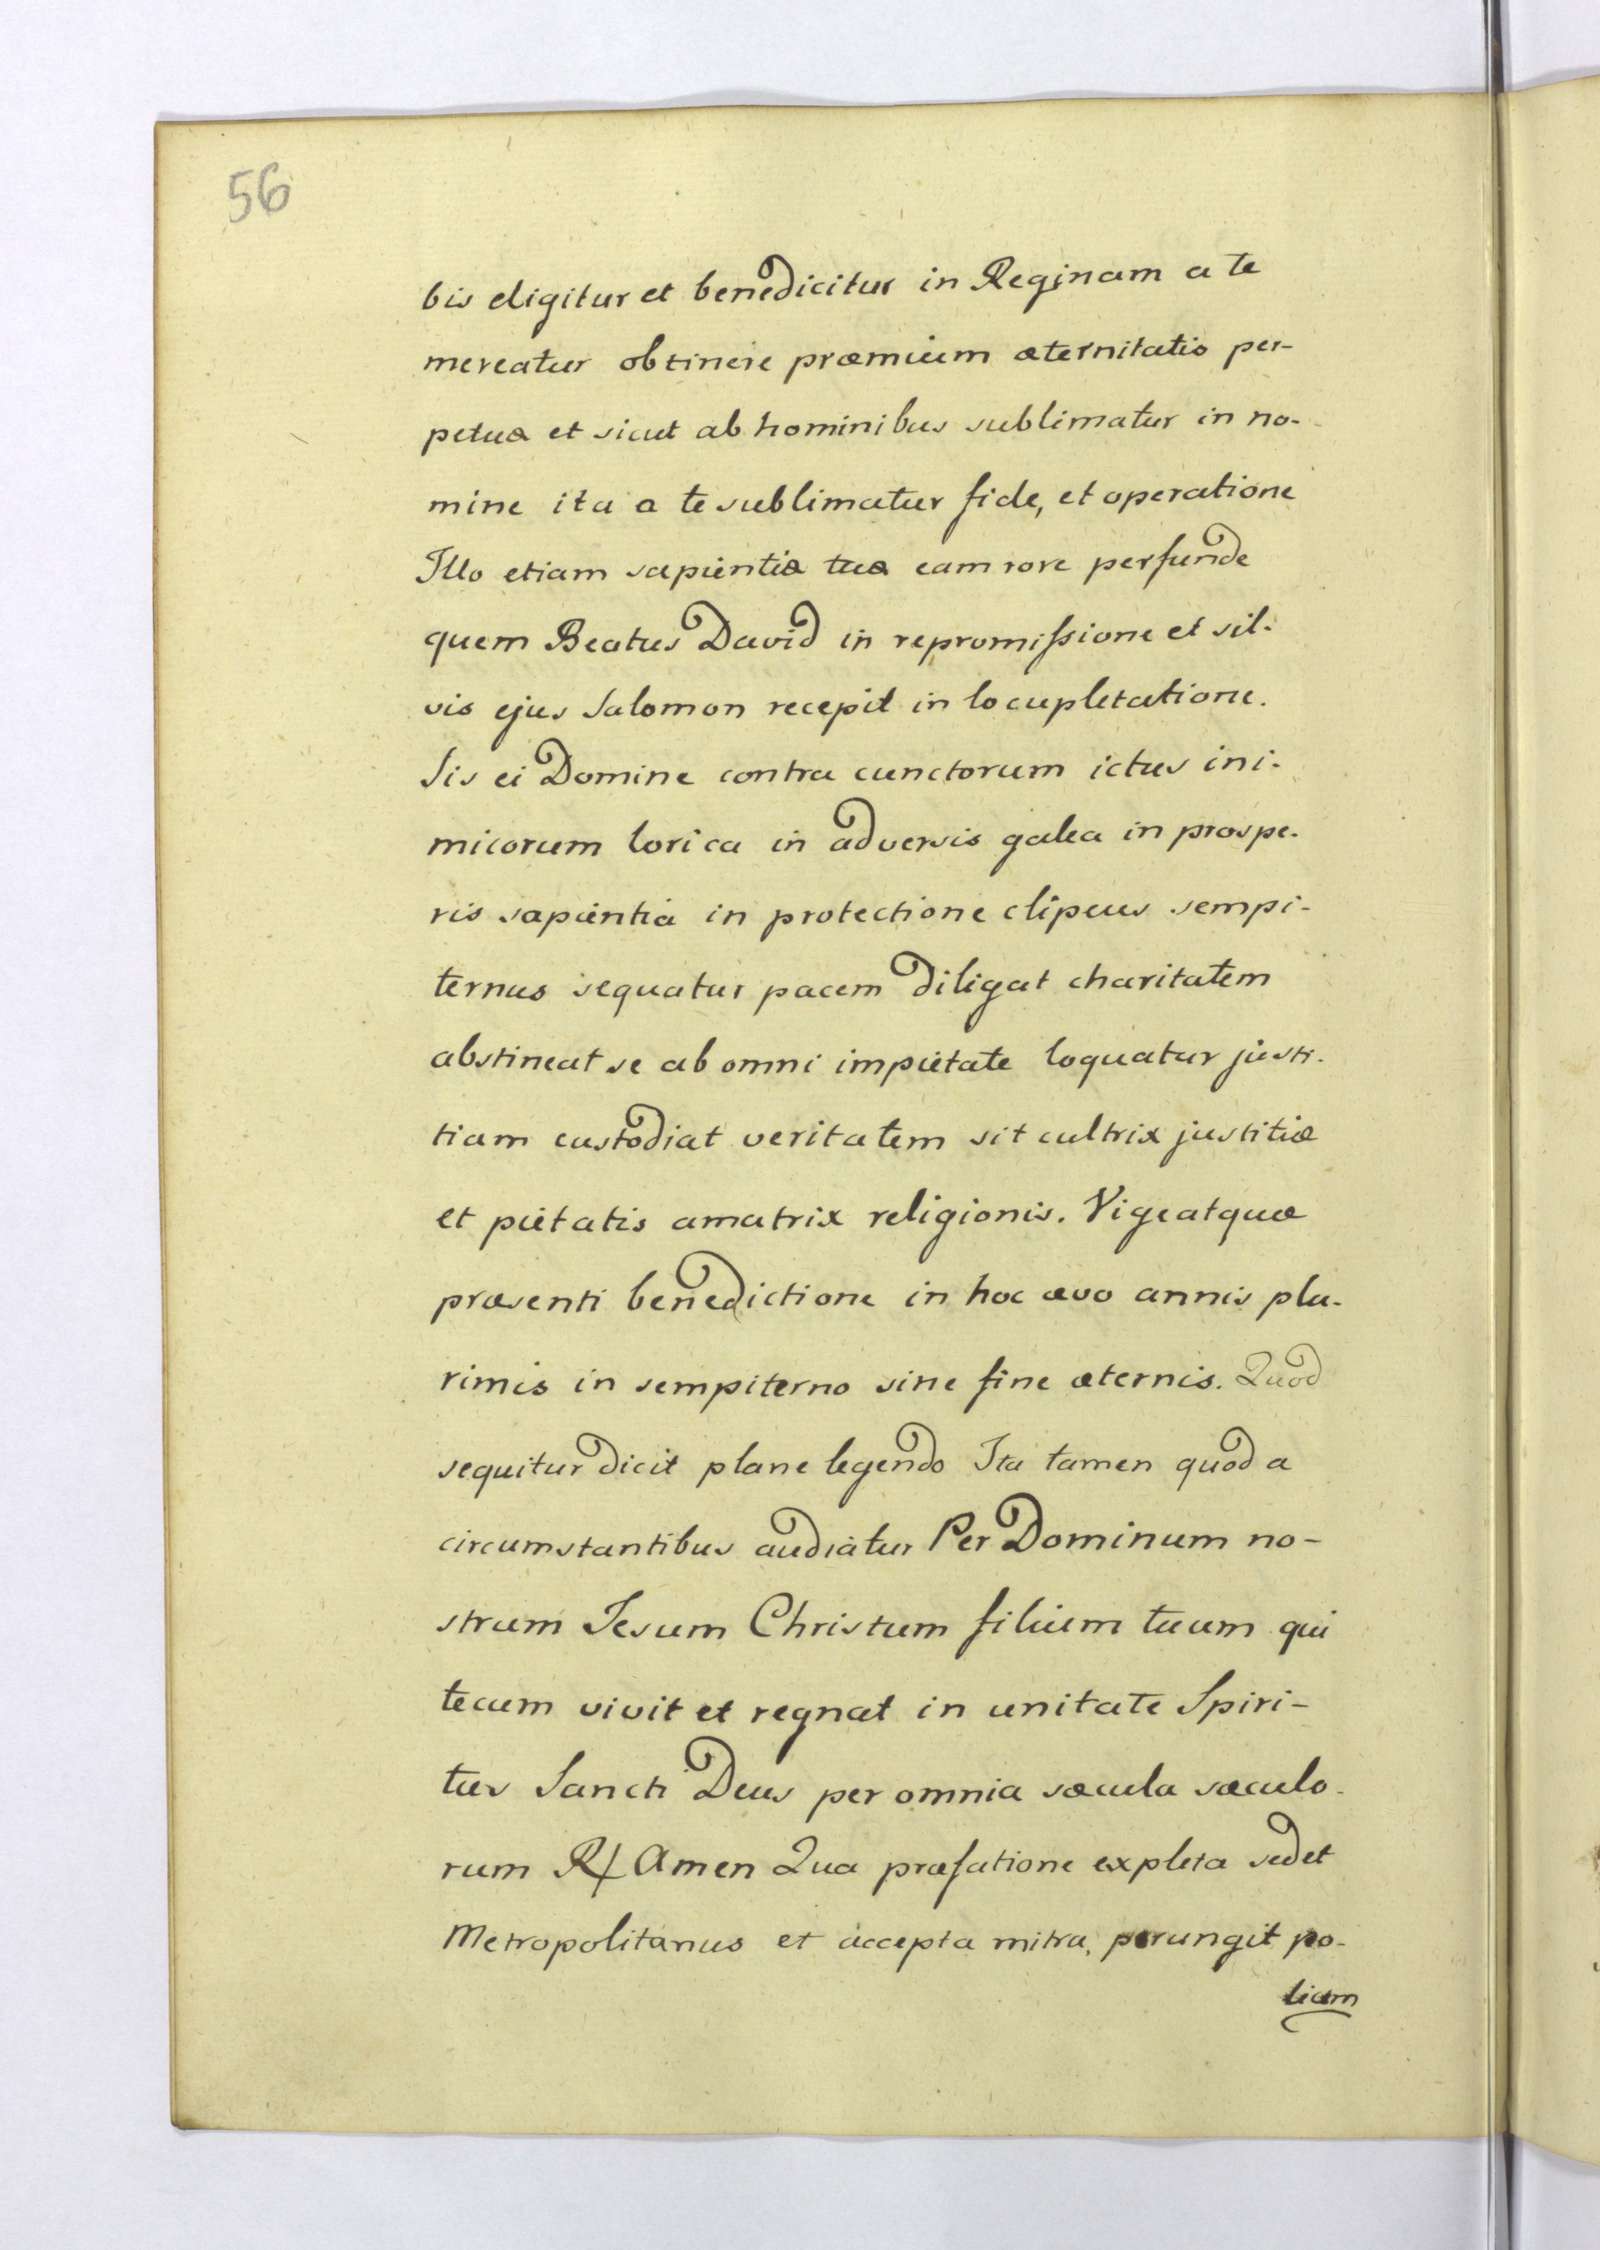 56
bis eligitur et benedicitur in Reginam a te
mereatur obtinere præmium æternitatis per-
petuæ et sicut ab hominibus sublimatur in no-
mine ita a te sublimatur fide, et operatione
Illo etiam sapientiæ tuæ eam rore perfunde
quem Beatus David in repromissione et sil-
vis ejus Salomon recepit in locupletatione.
Sis ei Domine contra cunctorum ictus ini-
micorum lorica in adversis galea in prospe-
ris sapientia in protectione clipeus sempi-
ternus sequatur pacem diligat charitatem
abstineat se ab omni impietate loquatur justi-
tiam custodiat veritatem sit cultrix justitiæ
et pietatis amatrix religionis. Vigeatquæ
præsenti benedictione in hoc ævo annis plu-
rimis in sempiterno sine fine æternis. Quod
sequitur dicit plane legendo Ita tamen quod a
circumstantibus audiatur Per Dominum no-
strum Jesum Christum filium tuum qui
tecum vivit et regnat in unitate Spiri-
tus Sancti Deus per omnia sæcula sæculo-
rum R/ Amen Qua præfatione expleta sedet
Metropolitanus et accepta mitra, perungit po-
liam